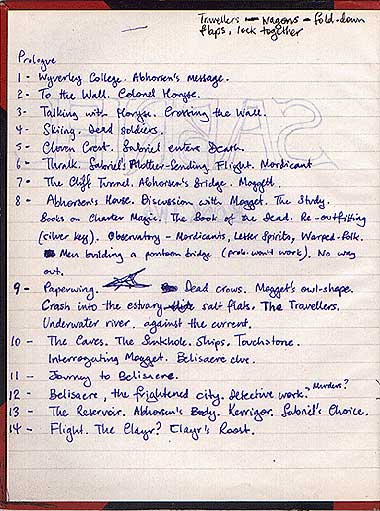 Travellers - Wagons - fold-down
flaps, lock together
Prologue
1 - Wyverley College. Abhorsen's message.
2 - To the Wall. Colonel Horyse.
3 - Talking with Horyse. Crossing the Wall.
4 - Skiing. Dead soldiers.
5 - Cloven Crest. Sabriel enters Death.
6 - Thralk. Sabriel's Mother-Sending. Flight. Mordicant
7 - The Cliff Tunnel. Abhorsen's Bridge. Moggett.
8 - Abhorsen's House. Discussion with Mogget. The Study.
Books on Charter Magic. The Book of the Dead. Re-outfitting
(silver key). Observatory - Mordicants, Lesser Spirits, Warped-folk.
Men building a pontoon bridge (prob. won't work). No way
out.
9 - Paperwing. Dead crows. Mogget's owl-shape.
Crash into the estuary salt flats. The Travellers.
Underwater river. against the current.
10 - The Caves. The Sinkhole. Ships. Touchstone.
Interrogating Mogget. Belisaere clue.
11 - Journey to Belisaere.
12 - Belisaere, the frightened city. Detective work. Murders?
13 - The Reservoir. Abhorsen's Body. Kerrigor. Sabriel's Choice.
14 - Flight. The Clayr? Clayr's Roost.
SABRIEL